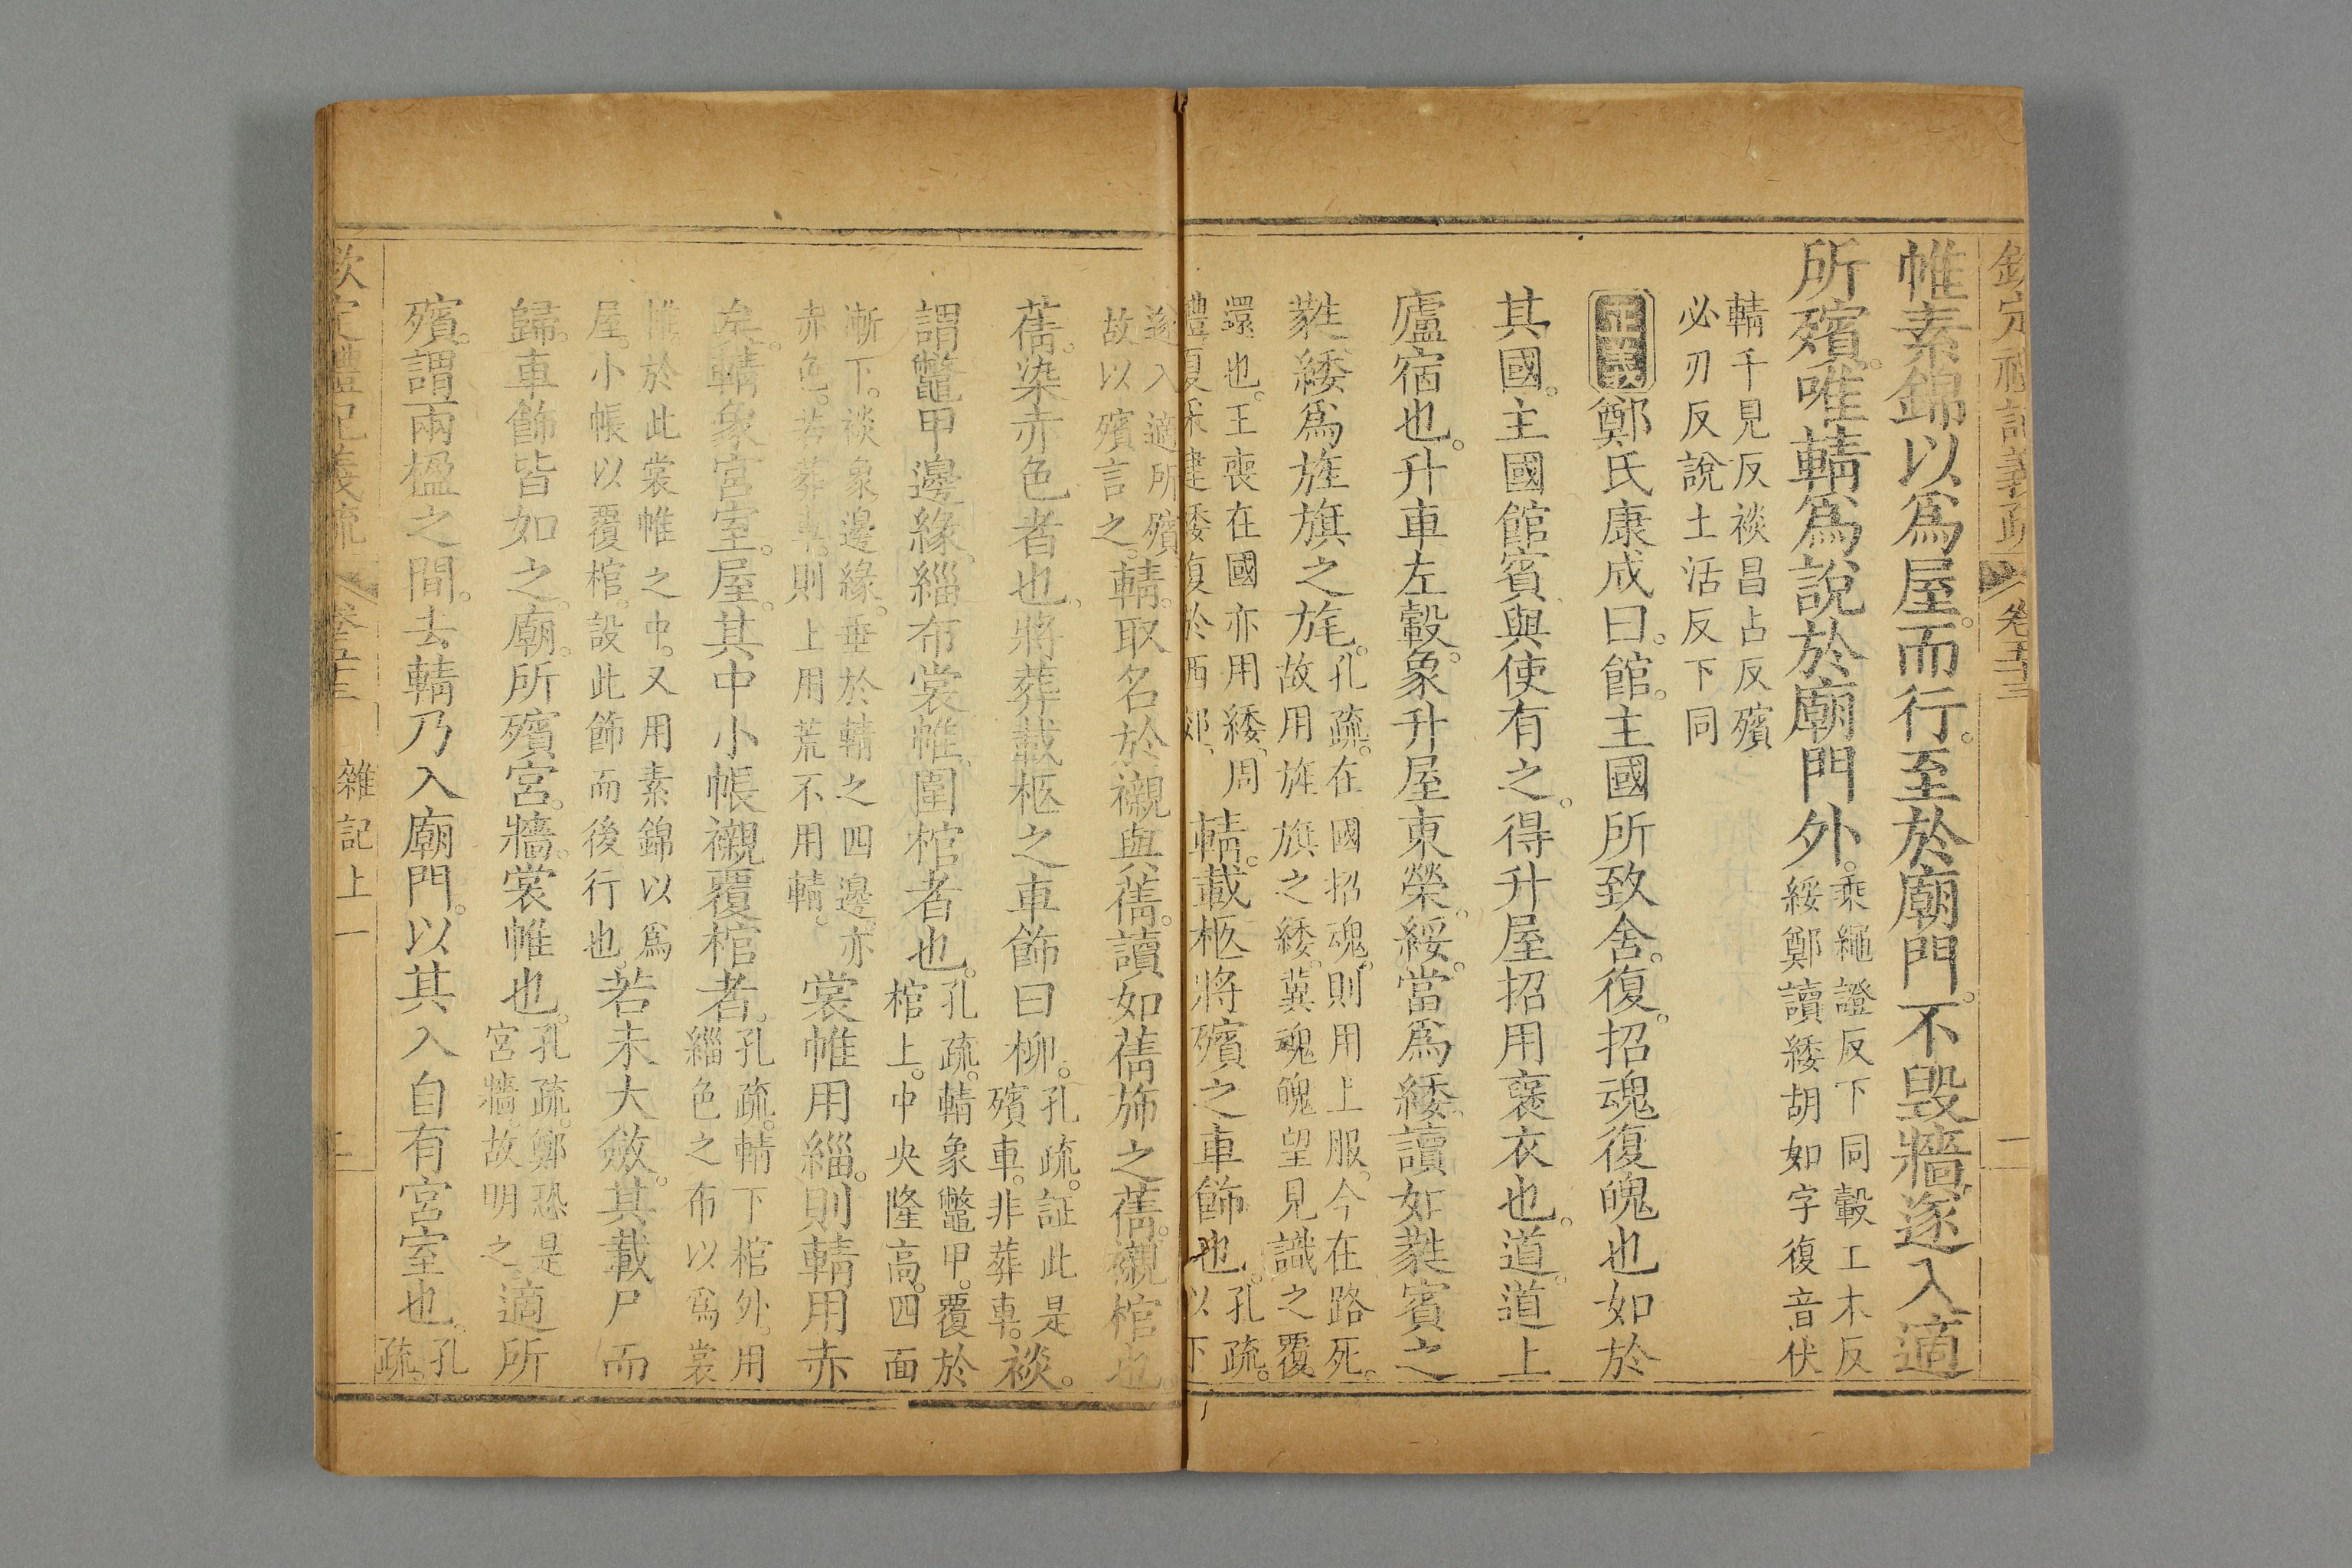 欽定禮記義疏 卷五十三 二
帷素錦以爲屋。而行。至於廟門。不毀牆。遂入適
所殯。唯輤爲說於廟門外。
乘繩證反下同轂工木反
綏鄭讀緌胡如字復音伏
輤千見反裧昌占反殯
必刃反說土活反下同
正義鄭氏康成曰。館。主國所致舍。復。招魂復魄也如於
其國。主國館賓與使有之。得升屋招用襃衣也。道。道上
廬宿也。升車左轂。象升屋東榮。綏。當爲緌。讀如蕤賓之
蕤緌爲旌旗之旄。
孔疏。在國招魂。則用上服。今在路死。
故用旌旗之緌。冀魂魄望見識之覆。
還也。王喪在國亦用緌、周
禮夏采建緌復於西郊、
輤。載柩將殯之車飾也。
孔疏。
以下
遂入適所殯
故以殯言之。
輤。取名於櫬與蒨。讀如蒨斾之蒨。櫬棺也。
蒨。染赤色者也。將葬載柩之車飾曰柳。
孔疏。証此是
殯車。非葬車。
裧。
謂鼈甲邊緣。緇布裳帷、圍棺者也。
孔疏。輤象鼈甲。覆於
棺上。中央隆高。四面
漸下。裧象邊緣。垂於輤之四邊。亦
赤色。若葬車。則上用荒不用輤。
裳帷用緇。則輤用赤
矣。輤象宮室。屋。其中小帳襯覆棺者。
孔疏。輤下棺外。用
緇色之布以爲裳
帷。於此裳帷之中。又用素錦以爲
屋。小帳以覆棺。設此飾而後行也。
若未大斂。其載尸而
歸。車飾皆如之。廟。所殯宮。牆。裳帷也。
孔疏。鄭恐是
宮牆。故明之。
適所
殯。謂兩楹之間。去輤乃入廟門。以其入自有宮室也。
孔
疏。
欽定禮記義疏 卷五十三 雜記上一 三